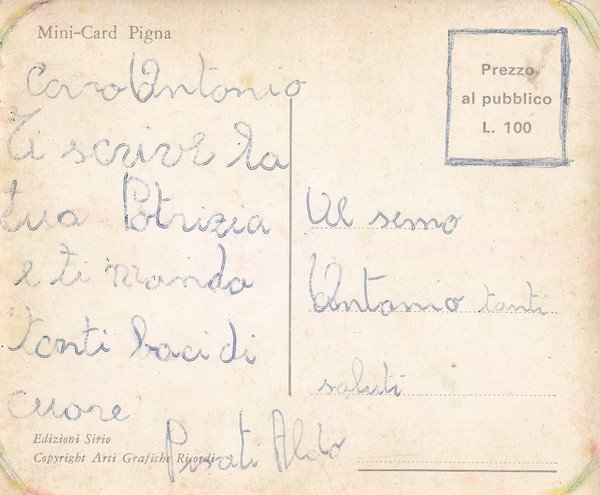 Mini-Card Pigna
Prezzo
al pubblico
L. 100
Caro Antonio
Ti scrive la
tua Patrizia
e ti manda
tanti baci di
cuore
Al
Antonio tanti
saluti
Edizioni Sirio
Copyright Arti Grafiche Ricordi
Aldo